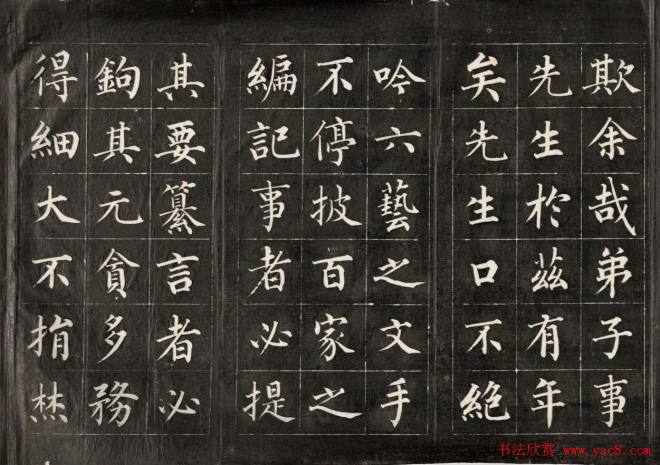 欺余哉弟子事
先生於茲有年
矣先生口不絕
吟六藝之文手
不停披百家之
編記事者必提
其要纂言者必
鉤其元貪多務
得細大不捐焚
书法欣赏 www.yac8.com